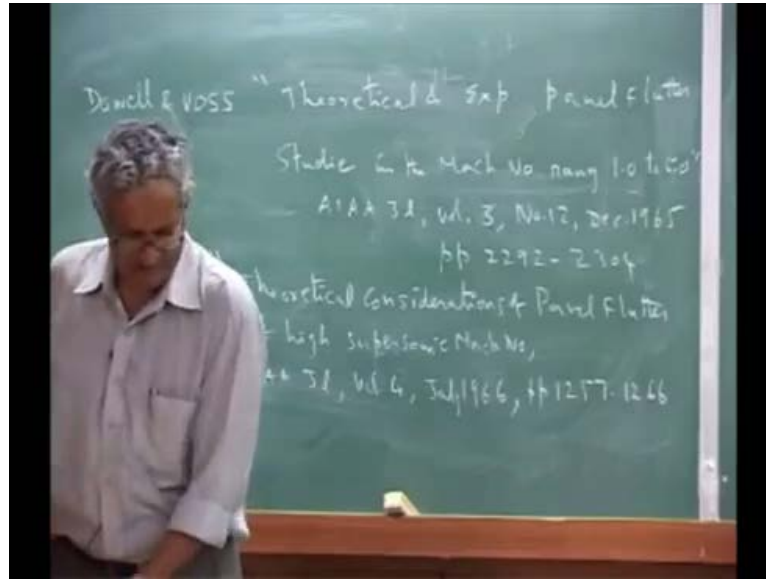 Dowell & VOSS "Theoretical & Exp panel Flutter
Studie in the Mach No rang 1.0 to 5.0"
AIAA Jl, vol. 3, No.12, Dec.1965
pp 2292-2304
Theoretical Considerations of Panel Flutter
high Supersonic Mach No,
AA Jl, Vol 4, July 1966, pp 1257-1266